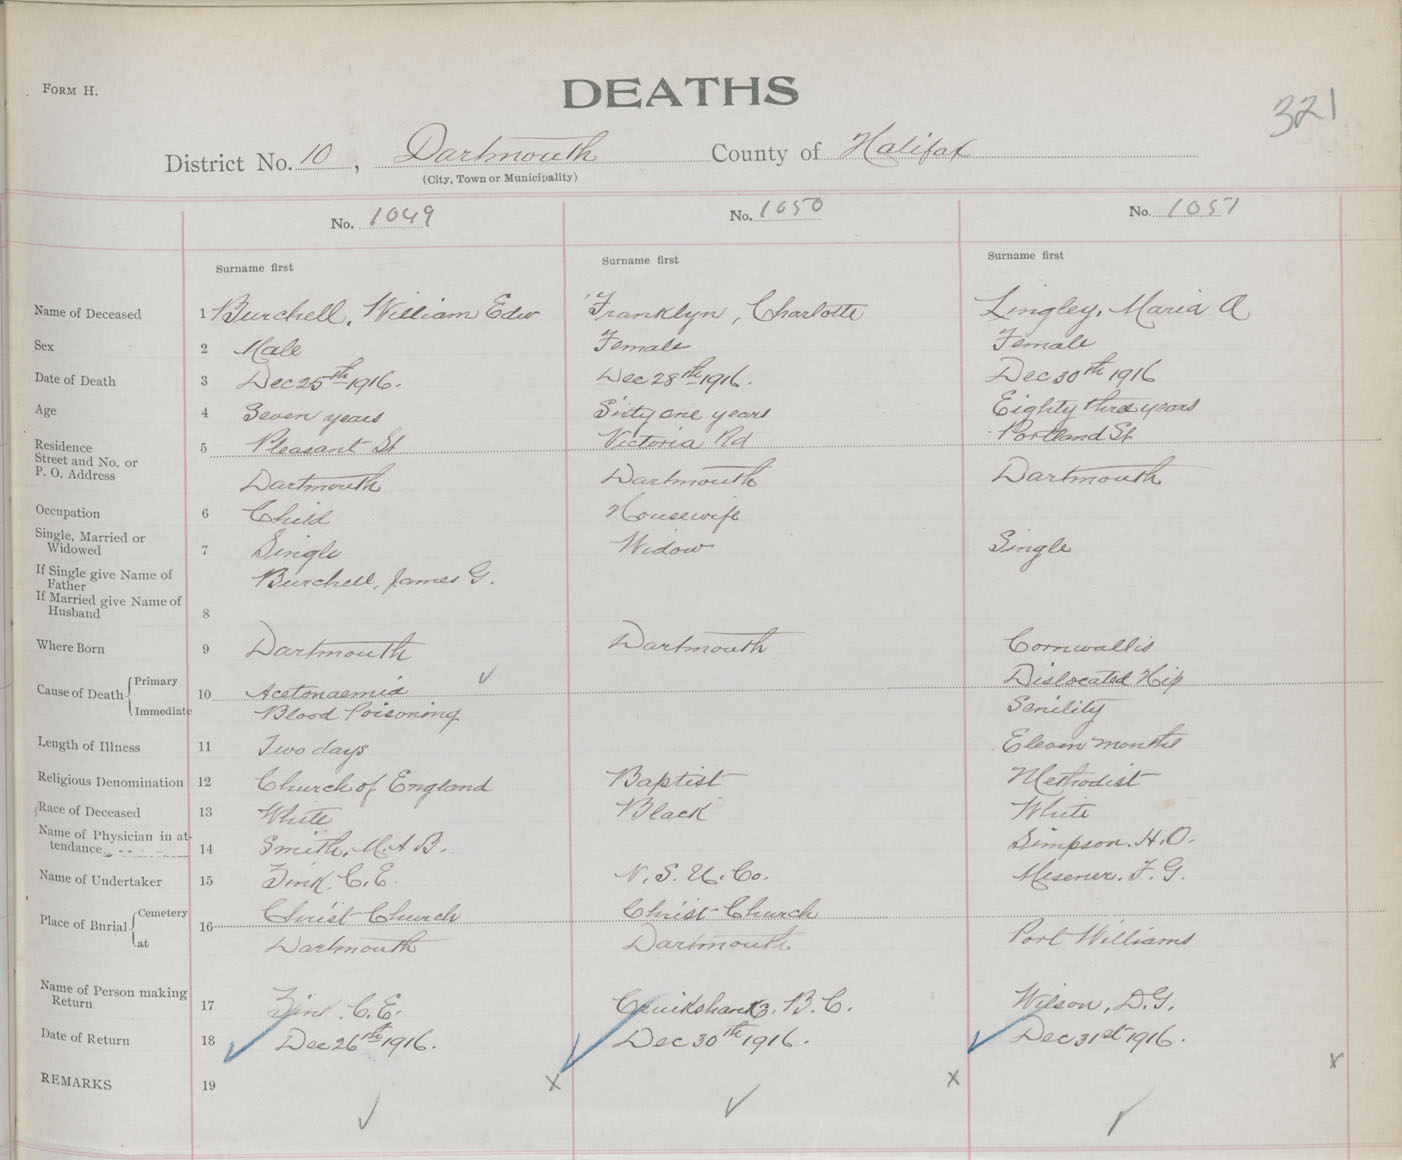 FORM H.
DEATHS
321
District No. 10, Dartmouth County of Halifax
(City, Town or Municipality)
No. 1049 No. 1050 No. 1051
Surname first Surname first Surname first
Name of Deceased 1 Burchell, William Edw Franklyn, Charlotte Lingley, Maria A
Sex 2 Male Female Female
Date of Death 3 Dec 25th 1916. Dec 28th 1916. Dec 30th 1916
Age 4 Seven years Sixty one years Eighty three years
Residence Street and No. or P. O. Address 5 Pleasant St Victoria Rd Portland St
Dartmouth Dartmouth Dartmouth
Occupation 6 Child Housewife
Single, Married or Widowed 7 Single Widow Single
If Single give Name of Father Burchell, James G.
If Married give Name of Husband 8
Where Born 9 Dartmouth Dartmouth Cornwallis
Cause of Death Primary 10 Acetonaemia Dislocated Hip
Immediate Blood Poisoning Senility
Length of Illness 11 Two days Eleven months
Religious Denomination 12 Church of England Baptist Methodist
Race of Deceased 13 White Black White
Name of Physician in attendance 14 Smith, M.A.B. Simpson. H.O.
Name of Undertaker 15 Zink. C.E. N.S.U.Co. Misener. F.G.
Place of Burial Cemetery 16 Christ Church Christ Church
at Dartmouth Dartmouth Port Williams
Name of Person making Return 17 Zink. C.E. Cruikshanks. B.C. Wilson, D.G.
Date of Return 18 Dec 26th 1916. Dec 30th 1916. Dec 31st 1916.
REMARKS 19 x x x